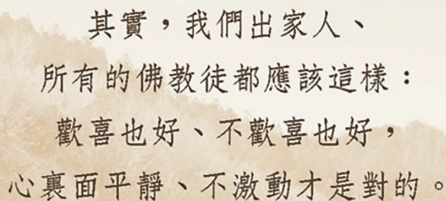 其實，我們出家人、
所有的佛教徒都應該這樣：
歡喜也好、不歡喜也好，
心裏面平靜、不激動才是對的。